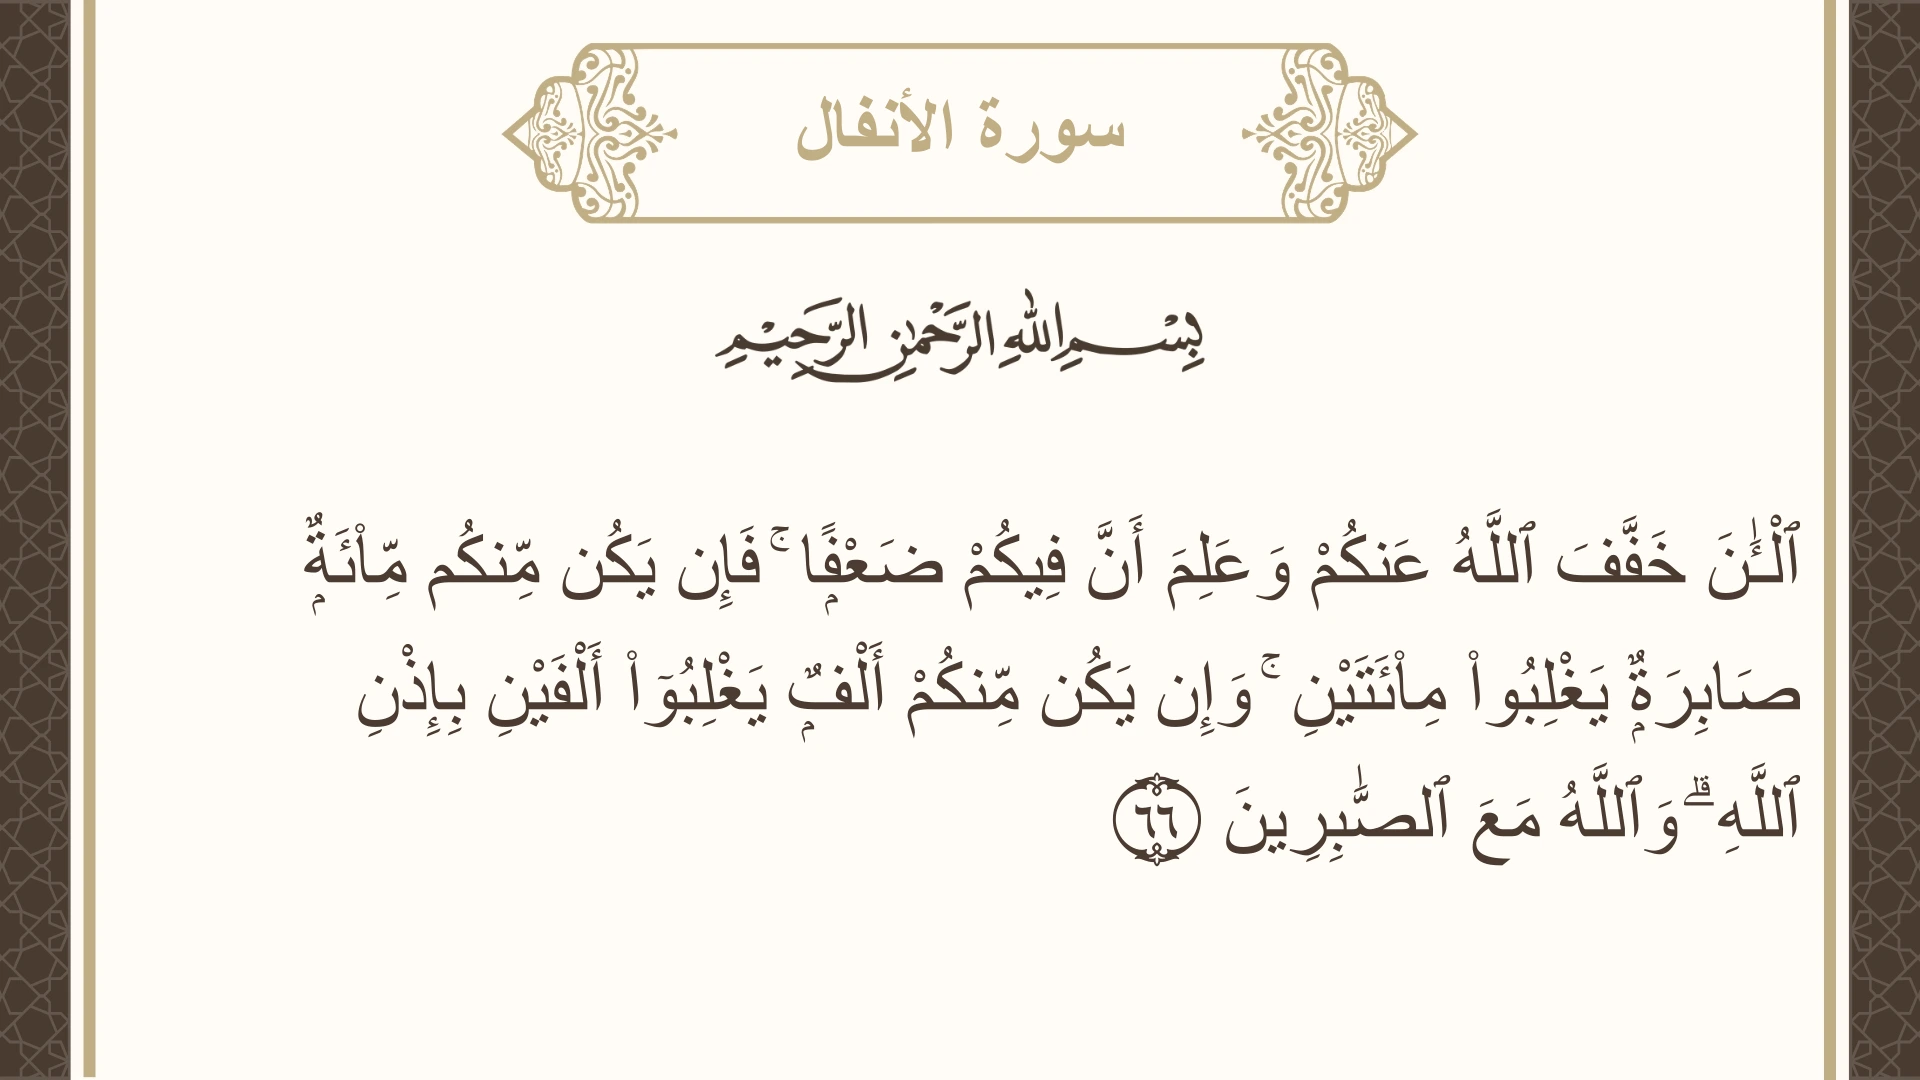 سورة الأنفال
بِسْمِ اللهِ الرَّحْمٰنِ الرَّحِيْمِ
ٱلْـَٰٔنَ خَفَّفَ ٱللَّهُ عَنكُمْ وَعَلِمَ أَنَّ فِيكُمْ ضَعْفًۭا ۚ فَإِن يَكُن مِّنكُم مِّا۟ئَةٌۭ
صَابِرَةٌۭ يَغْلِبُوا۟ مِا۟ئَتَيْنِ ۚ وَإِن يَكُن مِّنكُمْ أَلْفٌۭ يَغْلِبُوٓا۟ أَلْفَيْنِ بِإِذْنِ
ٱللَّهِ ۗ وَٱللَّهُ مَعَ ٱلصَّٰبِرِينَ ٦٦